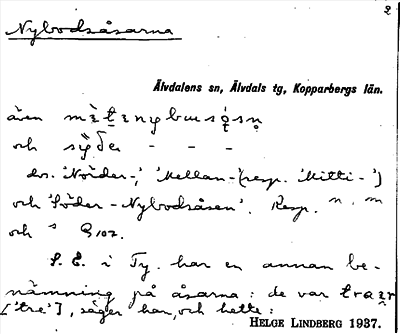 2
Nybodsåsarna
Älvdalens sn, Älvdals tg, Kopparbergs län.
även
och - - -
dvs. 'Norder-', 'Mellan-' (resp. 'Mitti-')
och 'Söder-Nybodsåsen'. Resp. n. m
och s G 107.
S. E. i Ty. har en annan be-
nämning på åsarna: de var
['tre'], säger han, och hette:
HELGE LINDBERG 1937.